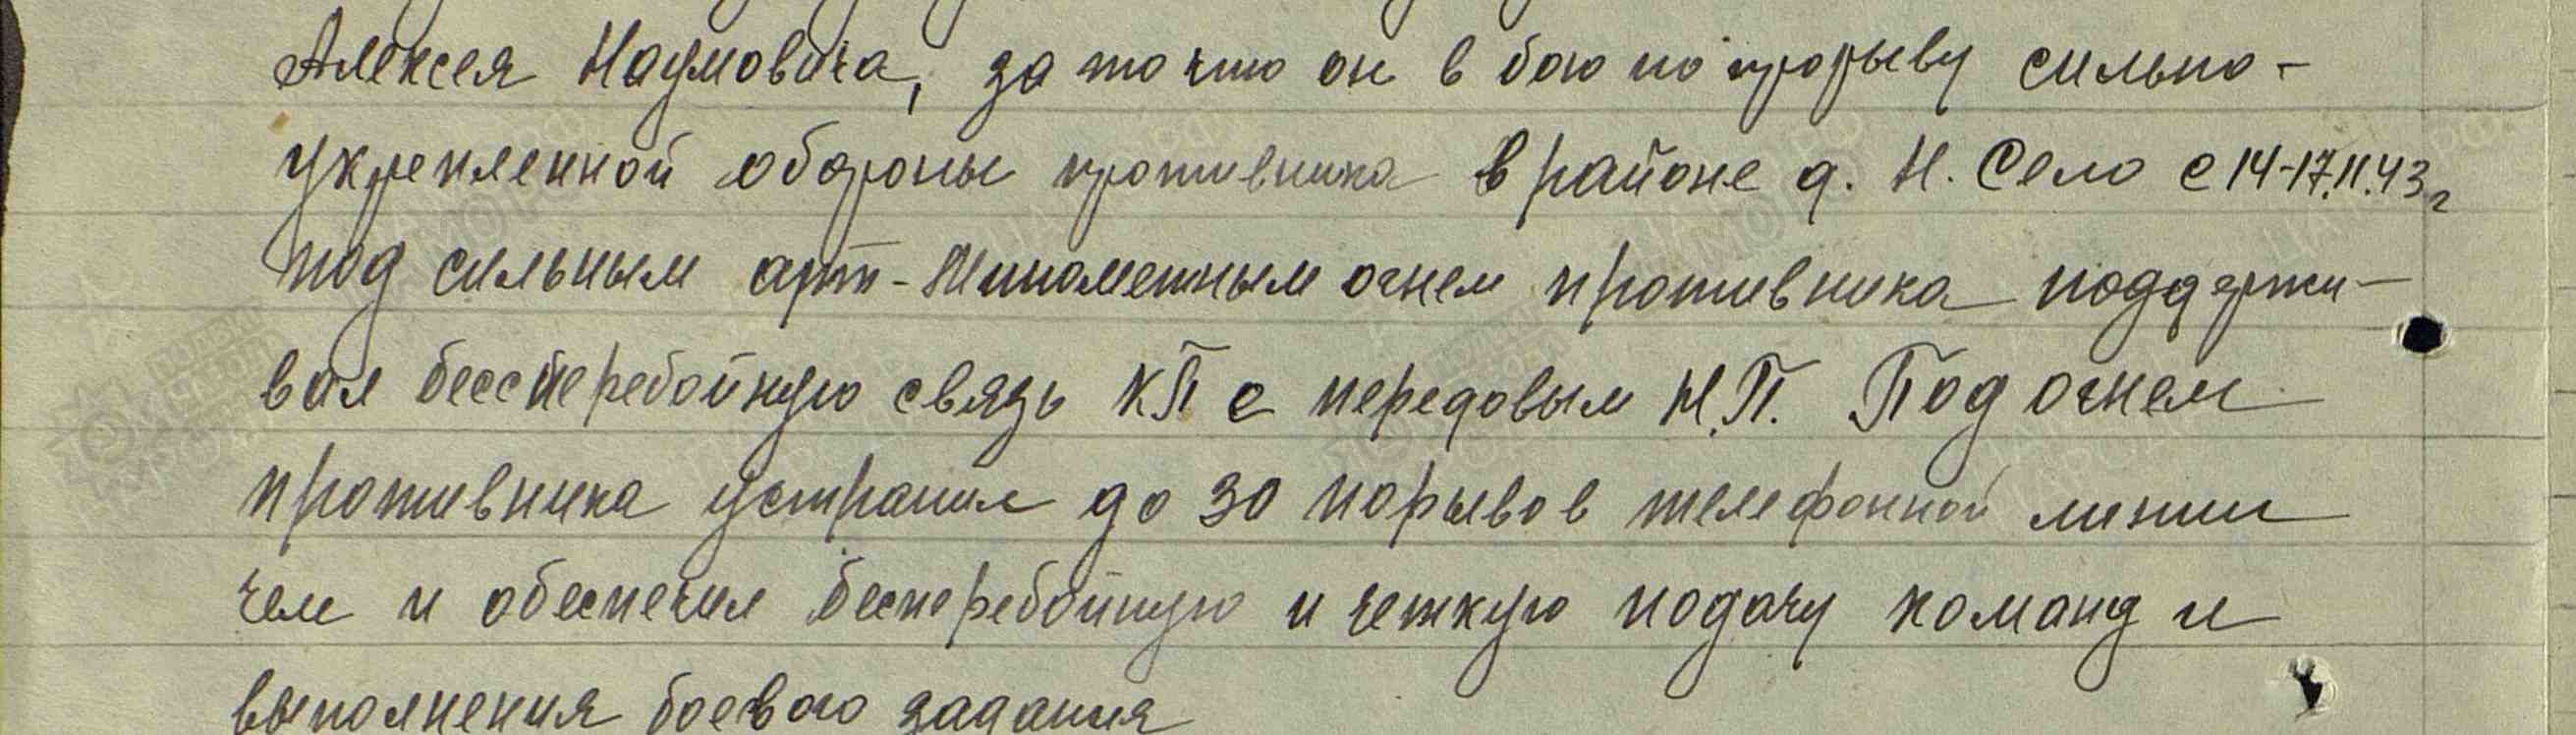 Алексея Наумовича, за то что он в бою по прорыву сильно-
укрепленной обороны противника в районе д. Н. Село с 14-17.11.43г
под сильным арт-минометным огнем противника поддержи-
вал бессперебойную связь КП с передовым Н.П. Под огнем
противника устранил до 30 порывов телефонной линии
чем и обеспечил бесперебойную и четкую подачу команд и
выполнения боевого задания